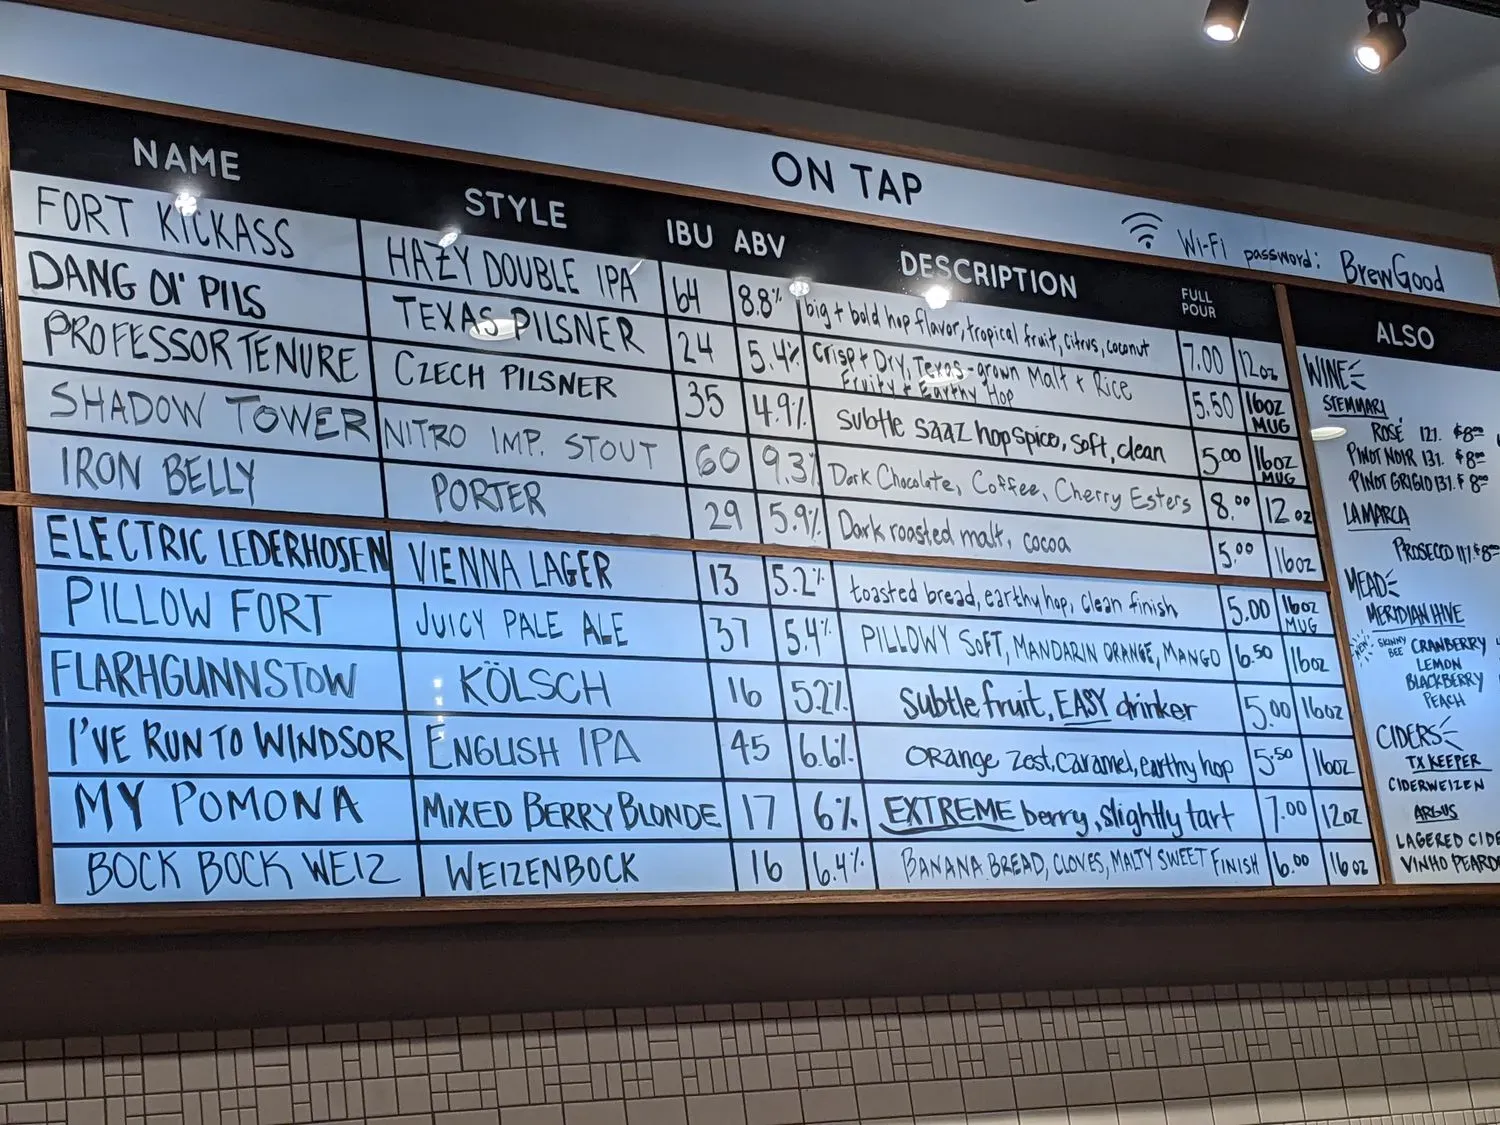 ON TAP
Wi-Fi password: BrewGood
NAME STYLE IBU ABV DESCRIPTION FULL POUR
FORT KICKASS HAZY DOUBLE IPA 64 8.8% big + bold hop flavor, tropical fruit, citrus, coconut 7.00 12oz
DANG OL' PILS TEXAS PILSNER 24 5.4% Crisp + Dry, Texas-grown Malt + Rice 5.50 16oz MUG
Fruity + Earthy Hop
PROFESSOR TENURE CZECH PILSNER 35 4.9% subtle saaz hop spice, soft, clean 5.00 16oz MUG
SHADOW TOWER NITRO IMP. STOUT 60 9.3% Dark Chocolate, Coffee, Cherry Esters 8.00 12oz
IRON BELLY PORTER 29 5.9% Dark roasted malt, cocoa 5.00 16oz
ELECTRIC LEDERHOSEN VIENNA LAGER 13 5.2% toasted bread, earthy hop, clean finish 5.00 16oz MUG
PILLOW FORT JUICY PALE ALE 37 5.4% PILLOWY SOFT, MANDARIN ORANGE, MANGO 6.50 16oz
FLARHGUNNSTOW KÖLSCH 16 5.2% subtle fruit, EASY drinker 5.00 16oz
I'VE RUN TO WINDSOR ENGLISH IPA 45 6.6% orange zest, caramel, earthy hop 5.50 16oz
MY POMONA MIXED BERRY BLONDE 17 6% EXTREME berry, slightly tart 7.00 12oz
BOCK BOCK WEIZ WEIZENBOCK 16 6.4% BANANA BREAD, CLOVES, MALTY SWEET FINISH 6.00 16oz
ALSO
WINE
STEMMARI
ROSÉ 12%. $8.00
PINOT NOIR 13%. $8.00
PINOT GRIGIO 13%. $8.00
LA MARCA
PROSECCO 11% $8
MEAD
MERIDIAN HIVE
NEW SKINNY BEE CRANBERRY
LEMON
BLACKBERRY
PEACH
CIDERS
TX KEEPER
CIDERWEIZEN
ARGUS
LAGERED CIDE
VINHO PEARD